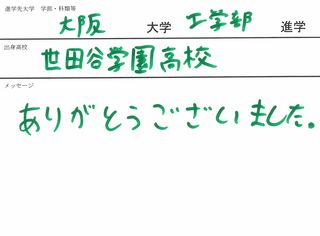 進学先大学 学部・科類等
大阪 大学 工学部 進学
出身高校
世田谷学園高校
メッセージ
ありがとうございました。